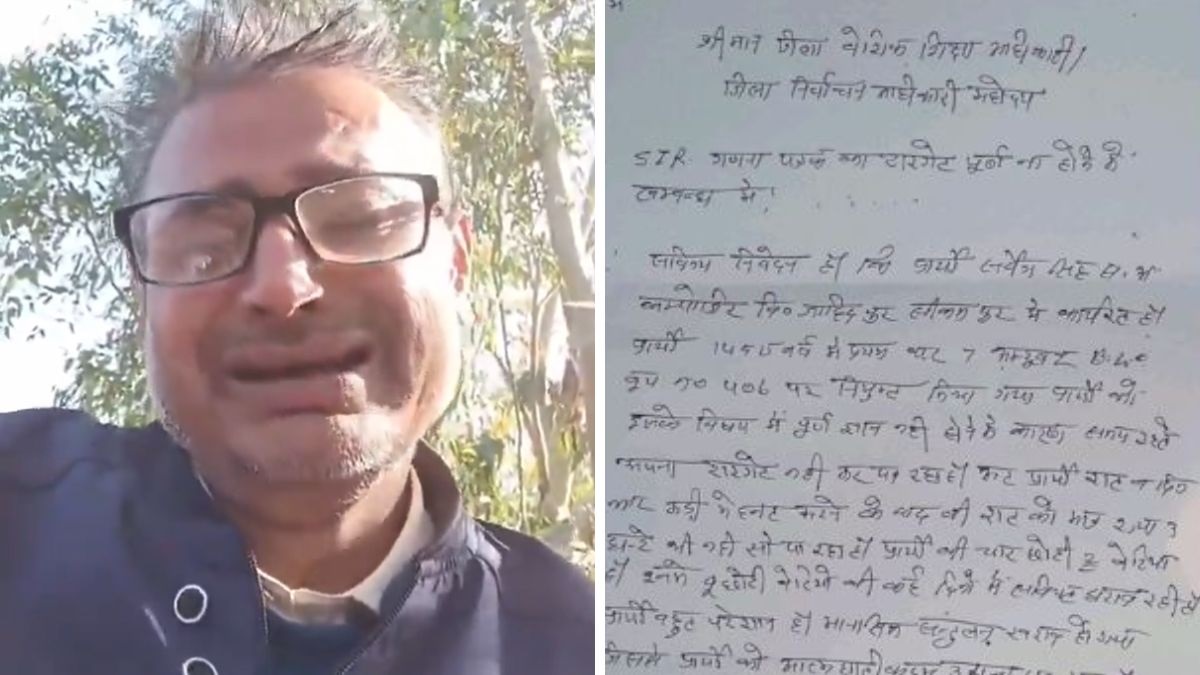 श्रीमान जिला बेसिक शिक्षा अधिकारी/
जिला निर्वाचन अधिकारी महोदय
SIR गणना प्रपत्र का टारगेट पूर्ण ना होने के
सम्बन्ध में!
सविनय निवेदन है कि प्रार्थी सर्वेश सिंह स. अ
कम्पोजिट वि० जाहिदपुर सीकमपुर में कार्यरत है।
प्रार्थी को वर्ष में प्रथम बार 7 अक्टूबर B.L.O
बूथ न० 406 पर नियुक्त किया गया प्रार्थी को
इसके विषय में पूर्ण ज्ञान नहीं होने के कारण समय रहते
अपना टारगेट नहीं कर पा रहा है। प्रार्थी रात व दिन
कड़ी मेहनत करने के बाद भी रात को मात्र 2 या 3
घन्टे भी नहीं सो पा रहा है। प्रार्थी की चार छोटी बेटियां
है। इनमें दो छोटी बेटियों की कई दिनों से तबियत खराब रही है।
प्रार्थी बहुत परेशान है। मानसिक संतुलन खराब हो गया
जिससे प्रार्थी को आत्मघाती कदम